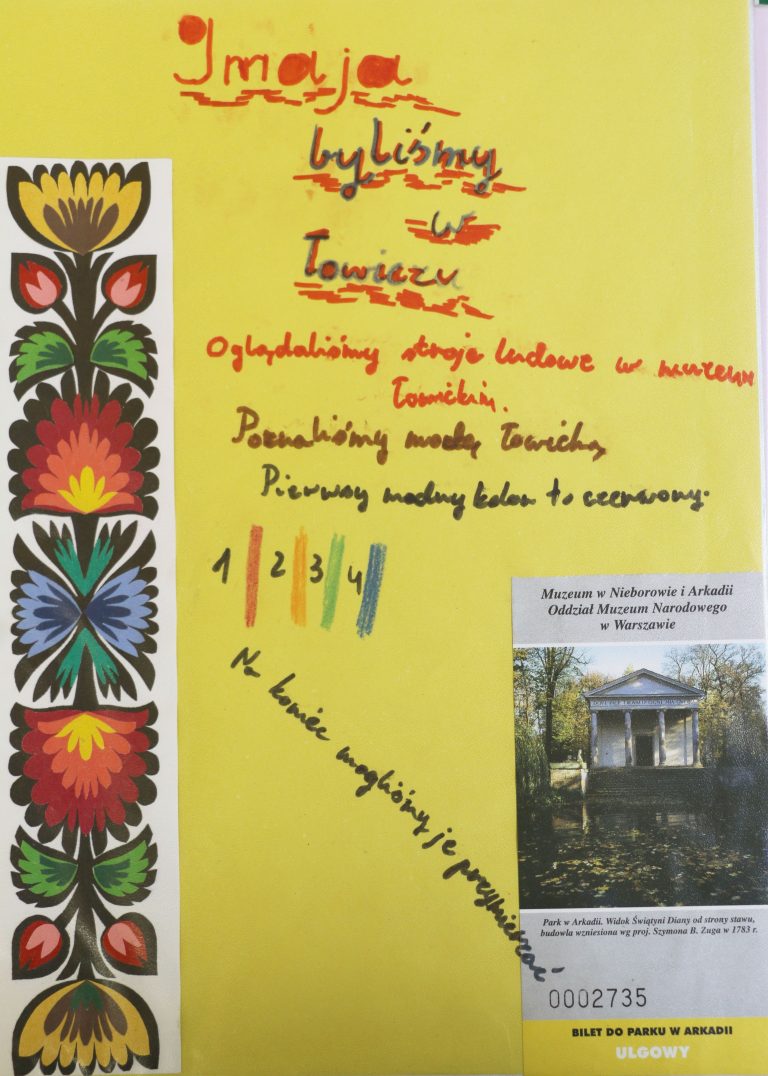 9 maja
byliśmy
w
Łowiczu
Oglądaliśmy stroje ludowe w muzeum
Łowickim.
Poznaliśmy modę łowicką
Pierwszy modny kolor to czerwony.
1 2 3 4
Na koniec mogliśmy je przymierzać
Muzeum w Nieborowie i Arkadii
Oddział Muzeum Narodowego
w Warszawie
Park w Arkadii. Widok Świątyni Diany od strony stawu,
budowla wzniesiona wg proj. Szymona B. Zuga w 1783 r.
0002735
BILET DO PARKU W ARKADII
ULGOWY